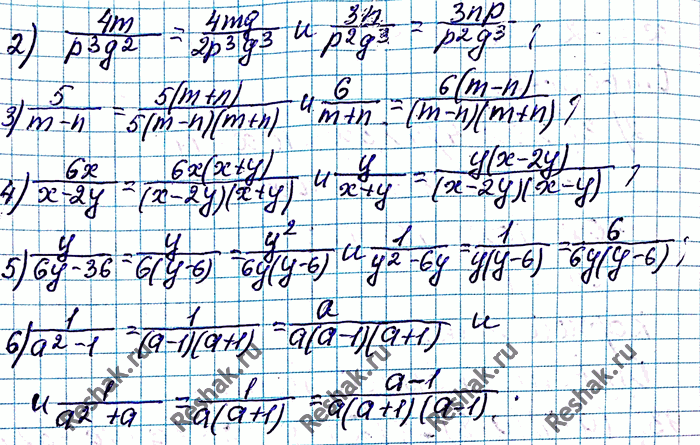 2) 4m/(p³g²) = 4mg/(2p³g³) и 3n/(p²g³) = 3np/(p²g³) ;
3) 5/(m-n) = 5(m+n)/(5(m-n)(m+n)) и 6/(m+n) = 6(m-n)/((m-n)(m+n)) ;
4) 6x/(x-2y) = 6x(x+y)/((x-2y)(x+y)) и y/(x+y) = y(x-2y)/((x-2y)(x-y)) ;
5) y/(6y-36) = y/(6(y-6)) = y²/(6y(y-6)) и 1/(y²-6y) = 1/(y(y-6)) = 6/(6y(y-6)) ;
6) 1/(a²-1) = 1/((a-1)(a+1)) = a/(a(a-1)(a+1)) и
и 1/(a²+a) = 1/(a(a+1)) = (a-1)/(a(a+1)(a-1)) .
Reshak.ru Reshak.ru Reshak.ru Reshak.ru Reshak.ru Reshak.ru